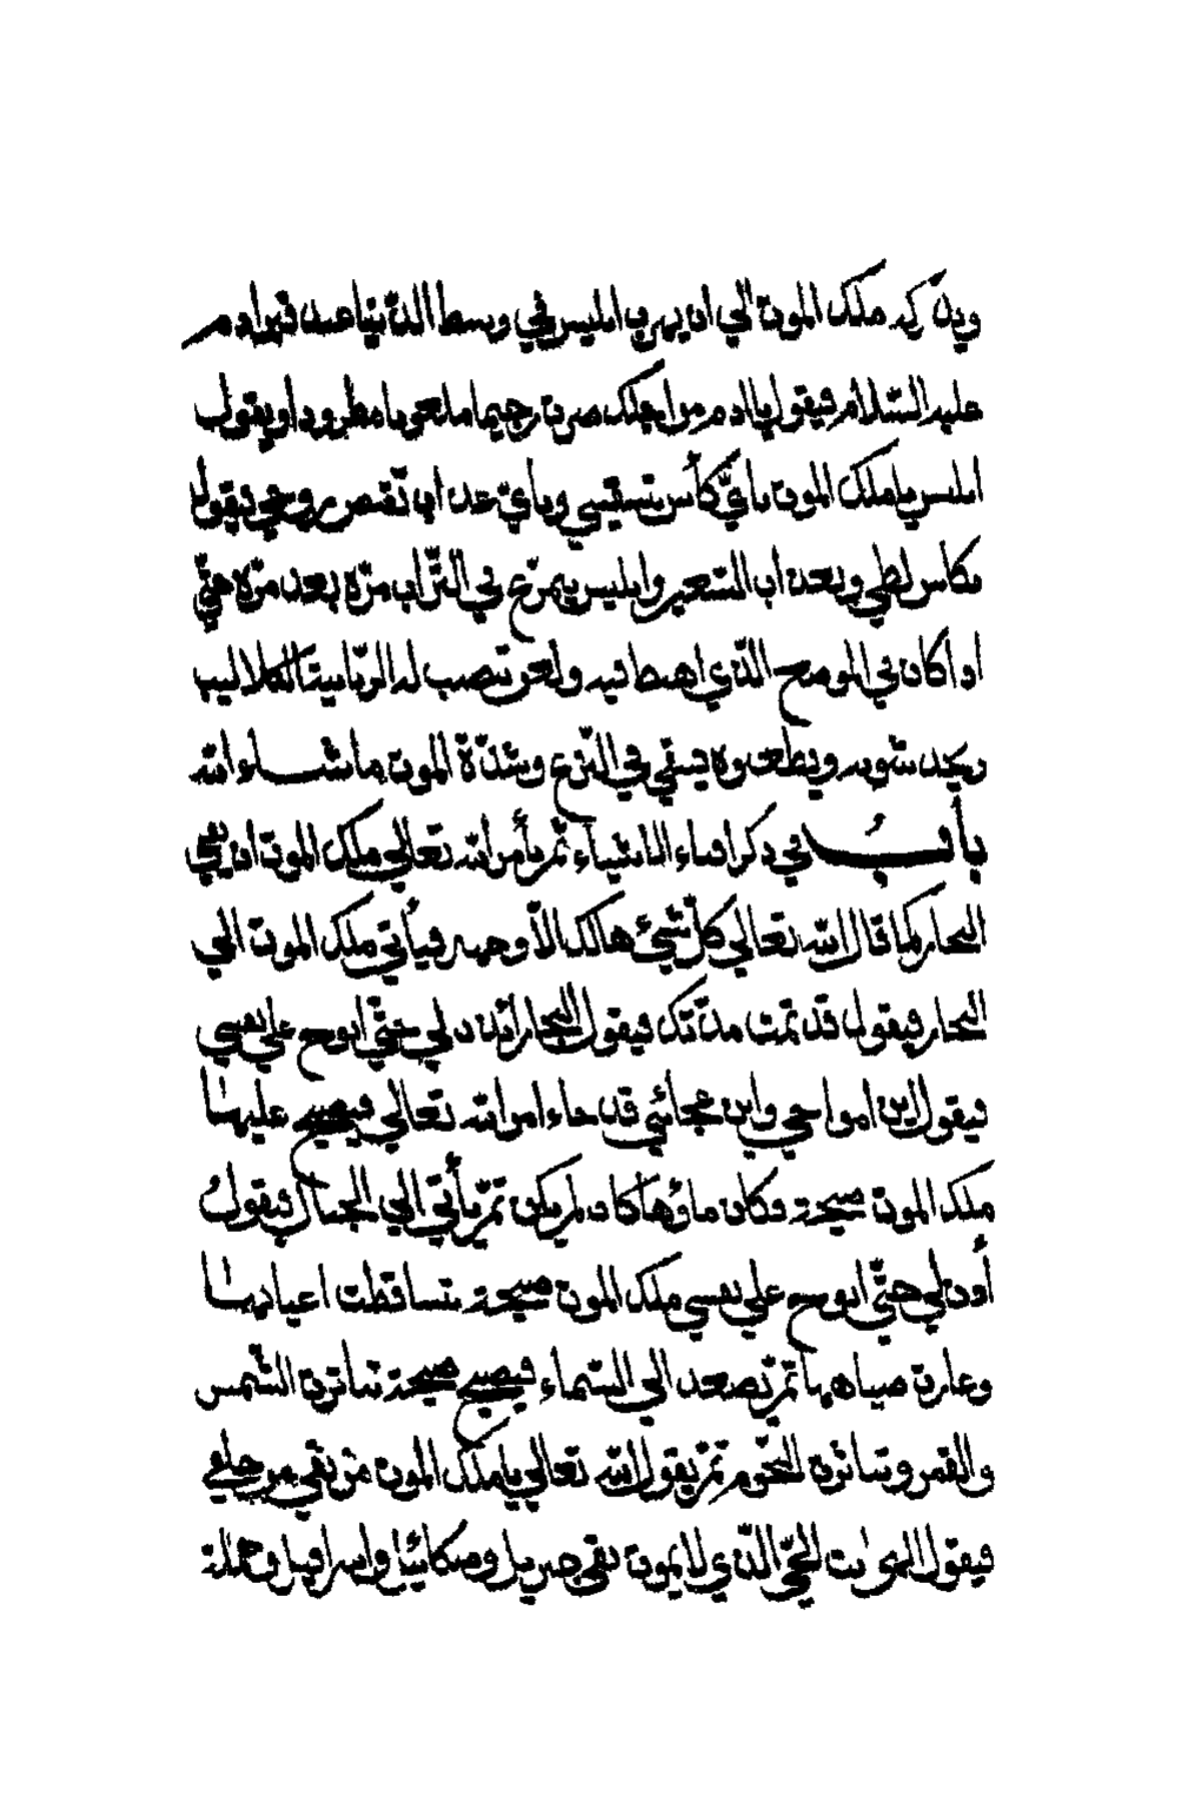 ويدركه ملك الموت الي ان يهرب ابليس في وسط الدّنيا عند قبر ادم
عليه السّلام فيقول يا ادم من اجلك صرت رجيما ملعونا مطرودا ويقول
ابليس يا ملك الموت بايّ كأس تسقيني وبايّ عذاب تقبض روحي فيقول
بكاس لظي وبعذاب السّعير وابليس يتمرّغ في التّراب مرّة بعد مرّة حتّي
اذا كان في الموضع الّذي اهبط فيه ولعن تنصب له الزّبانية الكلاليب
ويطعنوه فيبقي في النّزع وشدّة الموت ما شاء الله
بأب في ذكر افناء الاشياء ثمّ يأمر الله تعالي ملك الموت ان يفني
البحار كما قال الله تعالي كلّ شيئ هالك الاّ وجهه فيأتي ملك الموت الي
البحار فيقول قد تمت مدّتك فيقول البحار ائذن لي حتّي انوح علي نفسي
فيقول اين امواجي واين عجائبي قد جاء امر الله تعالي فيصيح عليها
ملك الموت صيحة فكان ماؤها كان لم يكن ثمّ يأتي الي الجبال فيقول
أذن لي حتّي انوح علي نفسي ملك الموت صيحة تتساقطت اعيانها
وعارت مياهها ثمّ تصعد الي السّماء فيصيح صيحة تناثرت الشّمس
والقمر وتناثرت النّجوم ثمّ يقول الله تعالي يا ملك الموت من بقي من خلقي
فيقول الهي انت الحيّ الّذي لا يموت بقي جبريل وميكائيل واسرافيل وحملة